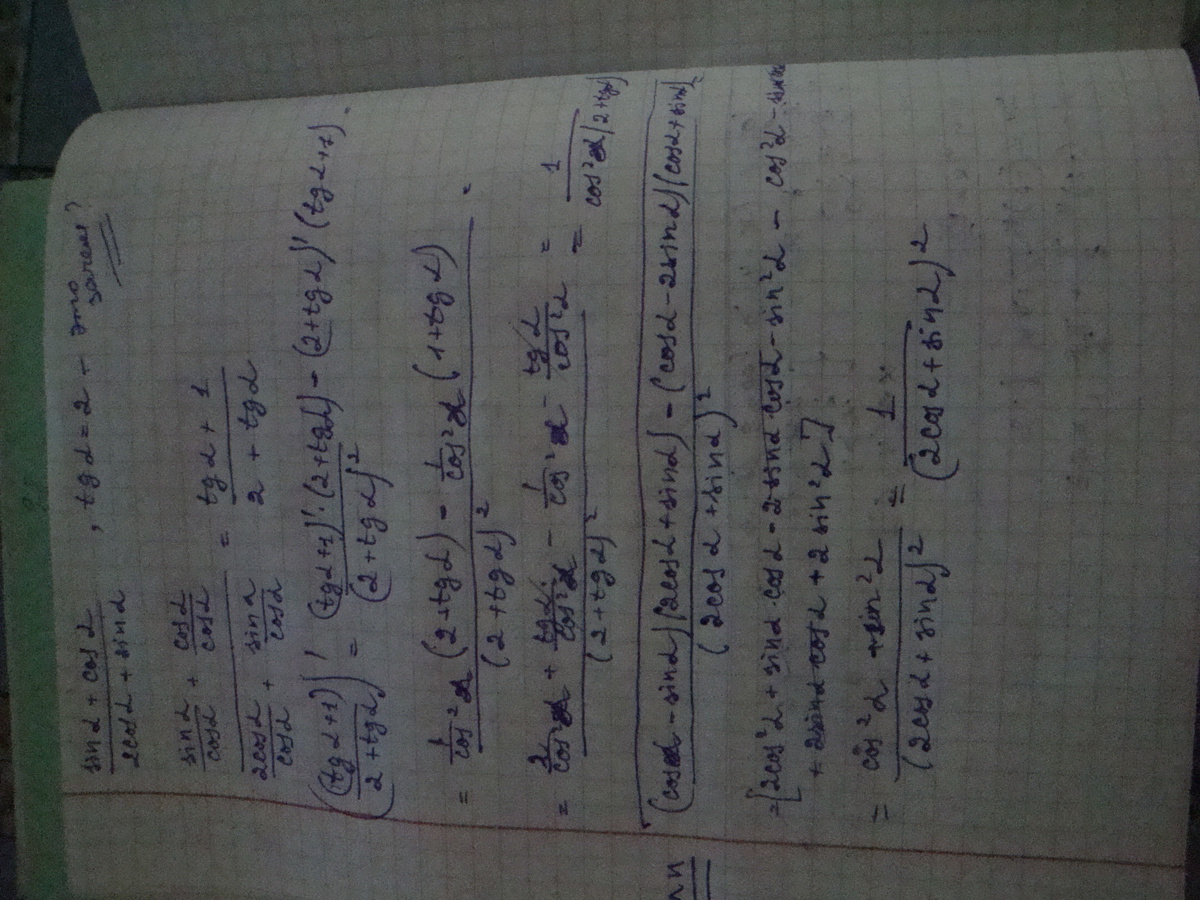 (sinα + cosα)/(2cosα + sinα) , tgα = 2 – это зачем?
(sinα/cosα + cosα/cosα)/(2cosα/cosα + sinα/cosα) = (tgα + 1)/(2 + tgα)
((tgα+1)/(2+tgα))' = ((tgα+1)'·(2+tgα) – (2+tgα)'(tgα+1))/(2+tgα)² =
= (1/cos²α (2+tgα) – 1/cos²α (1+tgα))/(2+tgα)² =
= (2/cos²α + tgα/cos²α – 1/cos²α – tgα/cos²α)/(2+tgα)² = 1/cos²α(2+tgα)
(cosα – sinα)(2cosα + sinα) – (cosα – 2sinα)(cosα + sinα)/(2cosα + sinα)² =
=[2cos²α + sinα·cosα – 2sinα·cosα – sin²α – cos²α – sinα
+ 2sinα·cosα + 2sin²α]
= (cos²α + sin²α)/(2cosα + sinα)² = 1/(2cosα + sinα)²